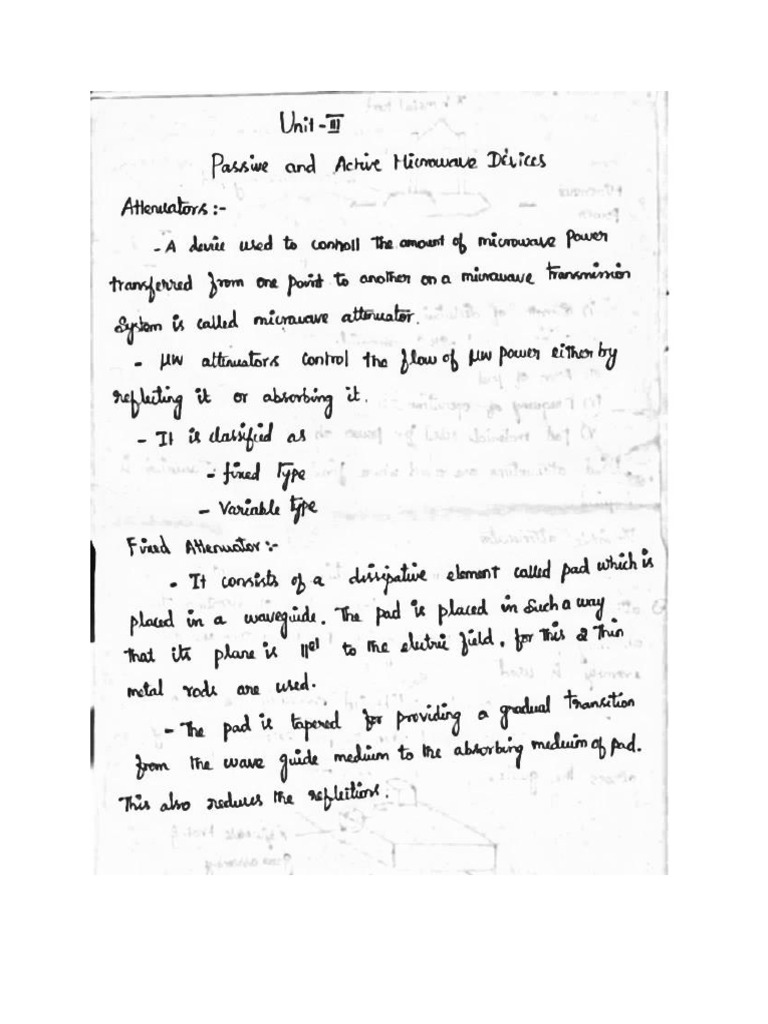 Unit-III
Passive and Active Microwave Devices
Attenuators:-
- A device used to controll the amount of microwave power
transferred from one point to another on a microwave transmission
System is called microwave attenuator.
- μw attenuators control the flow of μw power either by
reflecting it or absorbing it.
- It is classified as
- fixed Type
- Variable type
Fixed Attenuator:-
- It consists of a dissipative element called pad which is
placed in a waveguide. The pad is placed in such a way
that its plane is 11el to the electric field. for this 2 thin
metal rods are used.
- The pad is tapered for providing a gradual transition
from the wave guide medium to the absorbing medium of pad.
This also reduces the reflections.